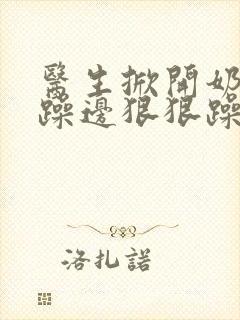 醫生掀開奶
躁邊狠狠躁
洛扎諾